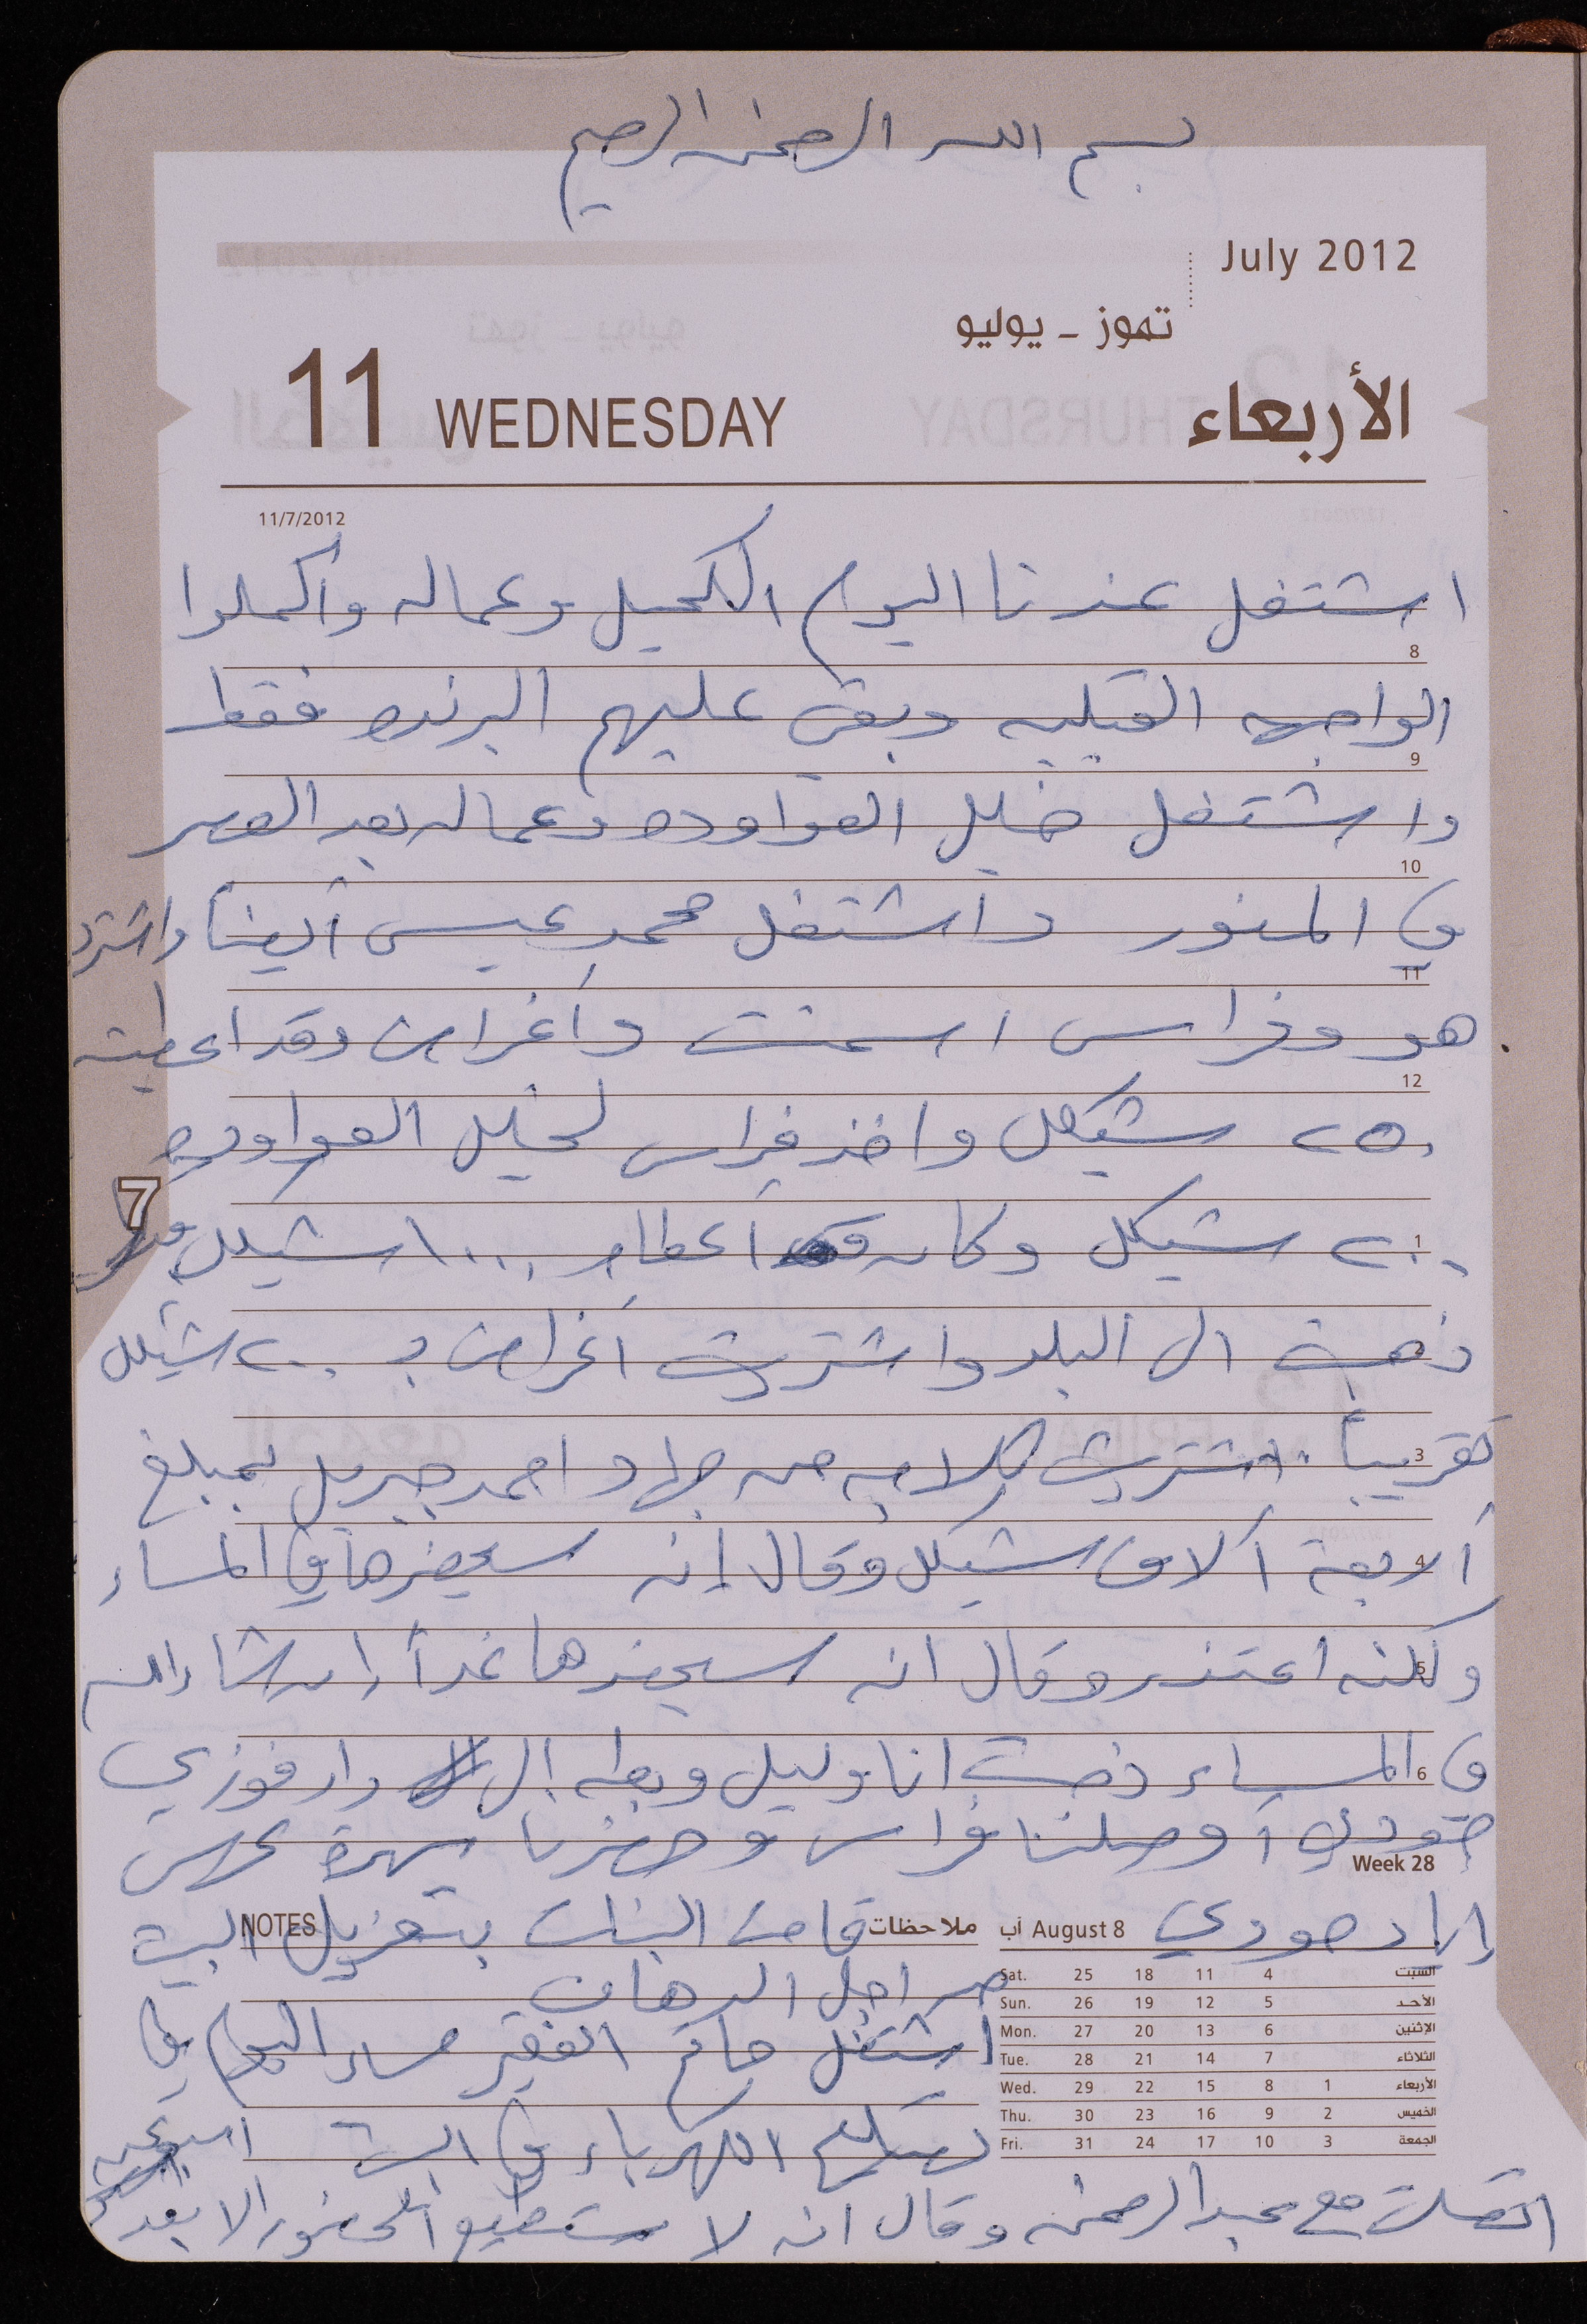 بسم الله الرحمن الرحيم
July 2012
تموز - يوليو
11 WEDNESDAY الأربعاء
11/7/2012
اشتغل عندنا اليوم الكحيل وعماله واكملوا
8
الواجهه القبليه وبقي عليهم البرنده فقط
9
واشتغل خليل العواوده وعماله بعد العصر
10
في المنور واشتغل محمد عيسى أيضاً واشترى
11
هو وفراس اسمنت وأغراض وقد اعطيته
12
٢٥٠ شيكل واخذ فراس لخليل العواوده
7
٢٠٠ شيكل وكان قد أعطاه ١٠٠٠ شيكل
1
ذهبت الى البلد واشتريت أغراض بـ ٢٠٠ شيكل
تقريباً . اشتريت من جهاد احمد جبريل بمبلغ
3
أربعة آلاف شيكل وقال إنه سيحضرها في المساء
4
ولكنه اعتذر وقال انه سيحضرها غداً إن شاء الله
5
في المساء ذهبت انا وليلى الى دار فوزي
6
حمودي أوصلنا فراس وحضرنا سهرة عرس
Week 28
إياد حمودي قامت البنات بتعزيل البيت
NOTES ملاحظات
August 8 آب
من اجل الدهان
اشتغل حاتم الفقير مساء اليوم في
تصليح الكهرباء في البيت
اتصلت مع عبد الرحمن وقال انه لا يستطيع الحضور الا بعد اسبوعين
Sat. 25 18 11 4 السبت
Sun. 26 19 12 5 الأحد
Mon. 27 20 13 6 الإثنين
Tue. 28 21 14 7 الثلاثاء
Wed. 29 22 15 8 1 الأربعاء
Thu. 30 23 16 9 2 الخميس
Fri. 31 24 17 10 3 الجمعة